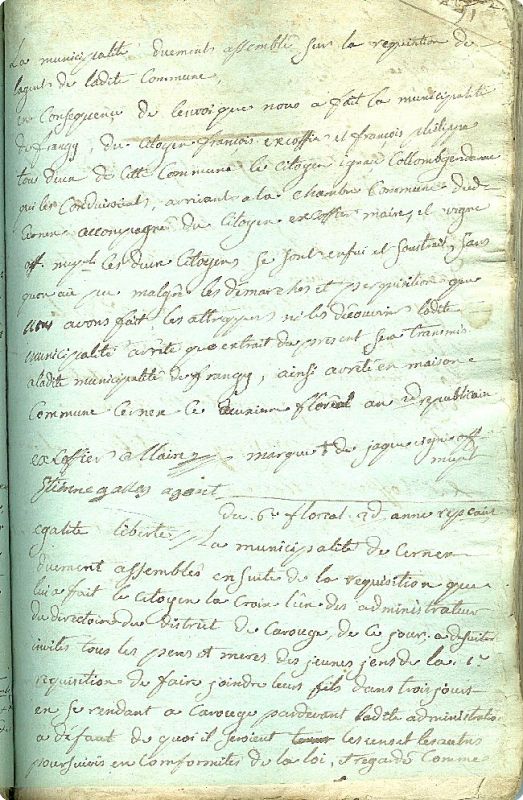 La municipalité duement assemblé, sur la requisition de
lagent de ladite Commune,
en Consequence de lenvoi que nous a fait la municipalité
de frangy, du Citoyen francois excoffier et françois philippe
tous deux de Cette Commune le Citoyen ignace Collomb gendarme
qui les Conduisoient, arrivant a la Chambre Commune dudit
Cernex accompagné du Citoyen excoffier maire, et vigne
off. mupl. les deux Citoyens se sont enfui et soustrait, sans
quon aie pu malgré les démarches et perquisitions que
nous avons fait les attrapper ni les découvrir ladite
municipalité arrête que extrait du présent sera transmis
a ladite municipalité de frangy, ainsi arrêté en maison
Commune Cernex le deuxieme floréal an 2d republicain
excoffier Maire marque + de jaque vigne off
mupl
Etienne gallay agent
Du 6e floreal 2d. anne repcaine
egalité liberté La municipalité de Cernex
duement assemblés ensuite de la requisition que
lui a fait le Citoyen la Croix l'un des administrateur
du directoire du District de Carouge, de ce jour a
invités tous les peres et meres des jeunes jens de la 1re
requisition de faire joindre leurs fils dans trois jours
en se rendant a Carouge pardevant ladite administratio
a défaut de quoi il seroient les uns et les autres
poursuivis en Conformité de la loi, et regardé Comme